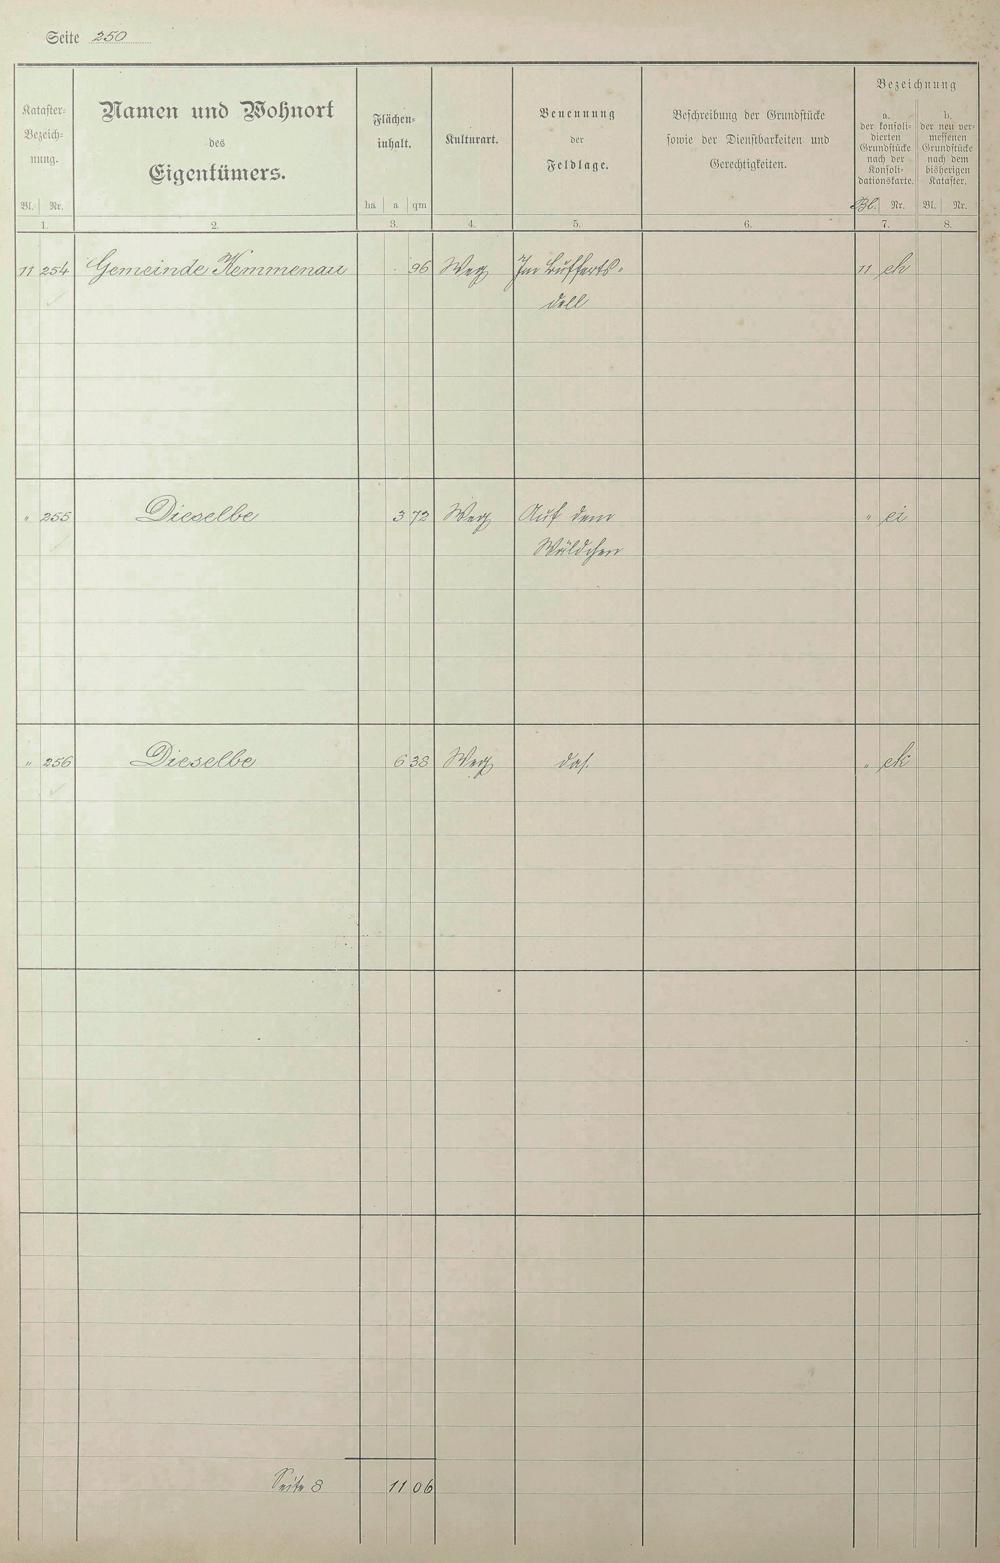 Seite 250
Kataster-
Bezeich-
nung.
Bl. Nr.
Namen und Wohnort
des
Eigentümers.
Flächen-
inhalt.
ha a qm
Kulturart.
Benennung
der
Feldlage.
Beschreibung der Grundstücke
sowie der Dienstbarkeiten und
Gerechtigkeiten.
Bezeichnung
a.
der konsoli-
dierten
Grundstücke
nach der
Konsoli-
dationskarte.
Bl. Nr.
b.
der neu ver-
messenen
Grundstücke
nach dem
bisherigen
Kataster.
Bl. Nr.
1. 2. 3. 4. 5. 6. 7. 8.
11 254 Gemeinde Kemmenau 96 Weg Im Bufferts- 11 eh
dell
" 255 Dieselbe 3 72 Weg Auf dem " ei
Wäldchen
" 256 Dieselbe 6 38 Weg das. " ek
Seite 8 11 06